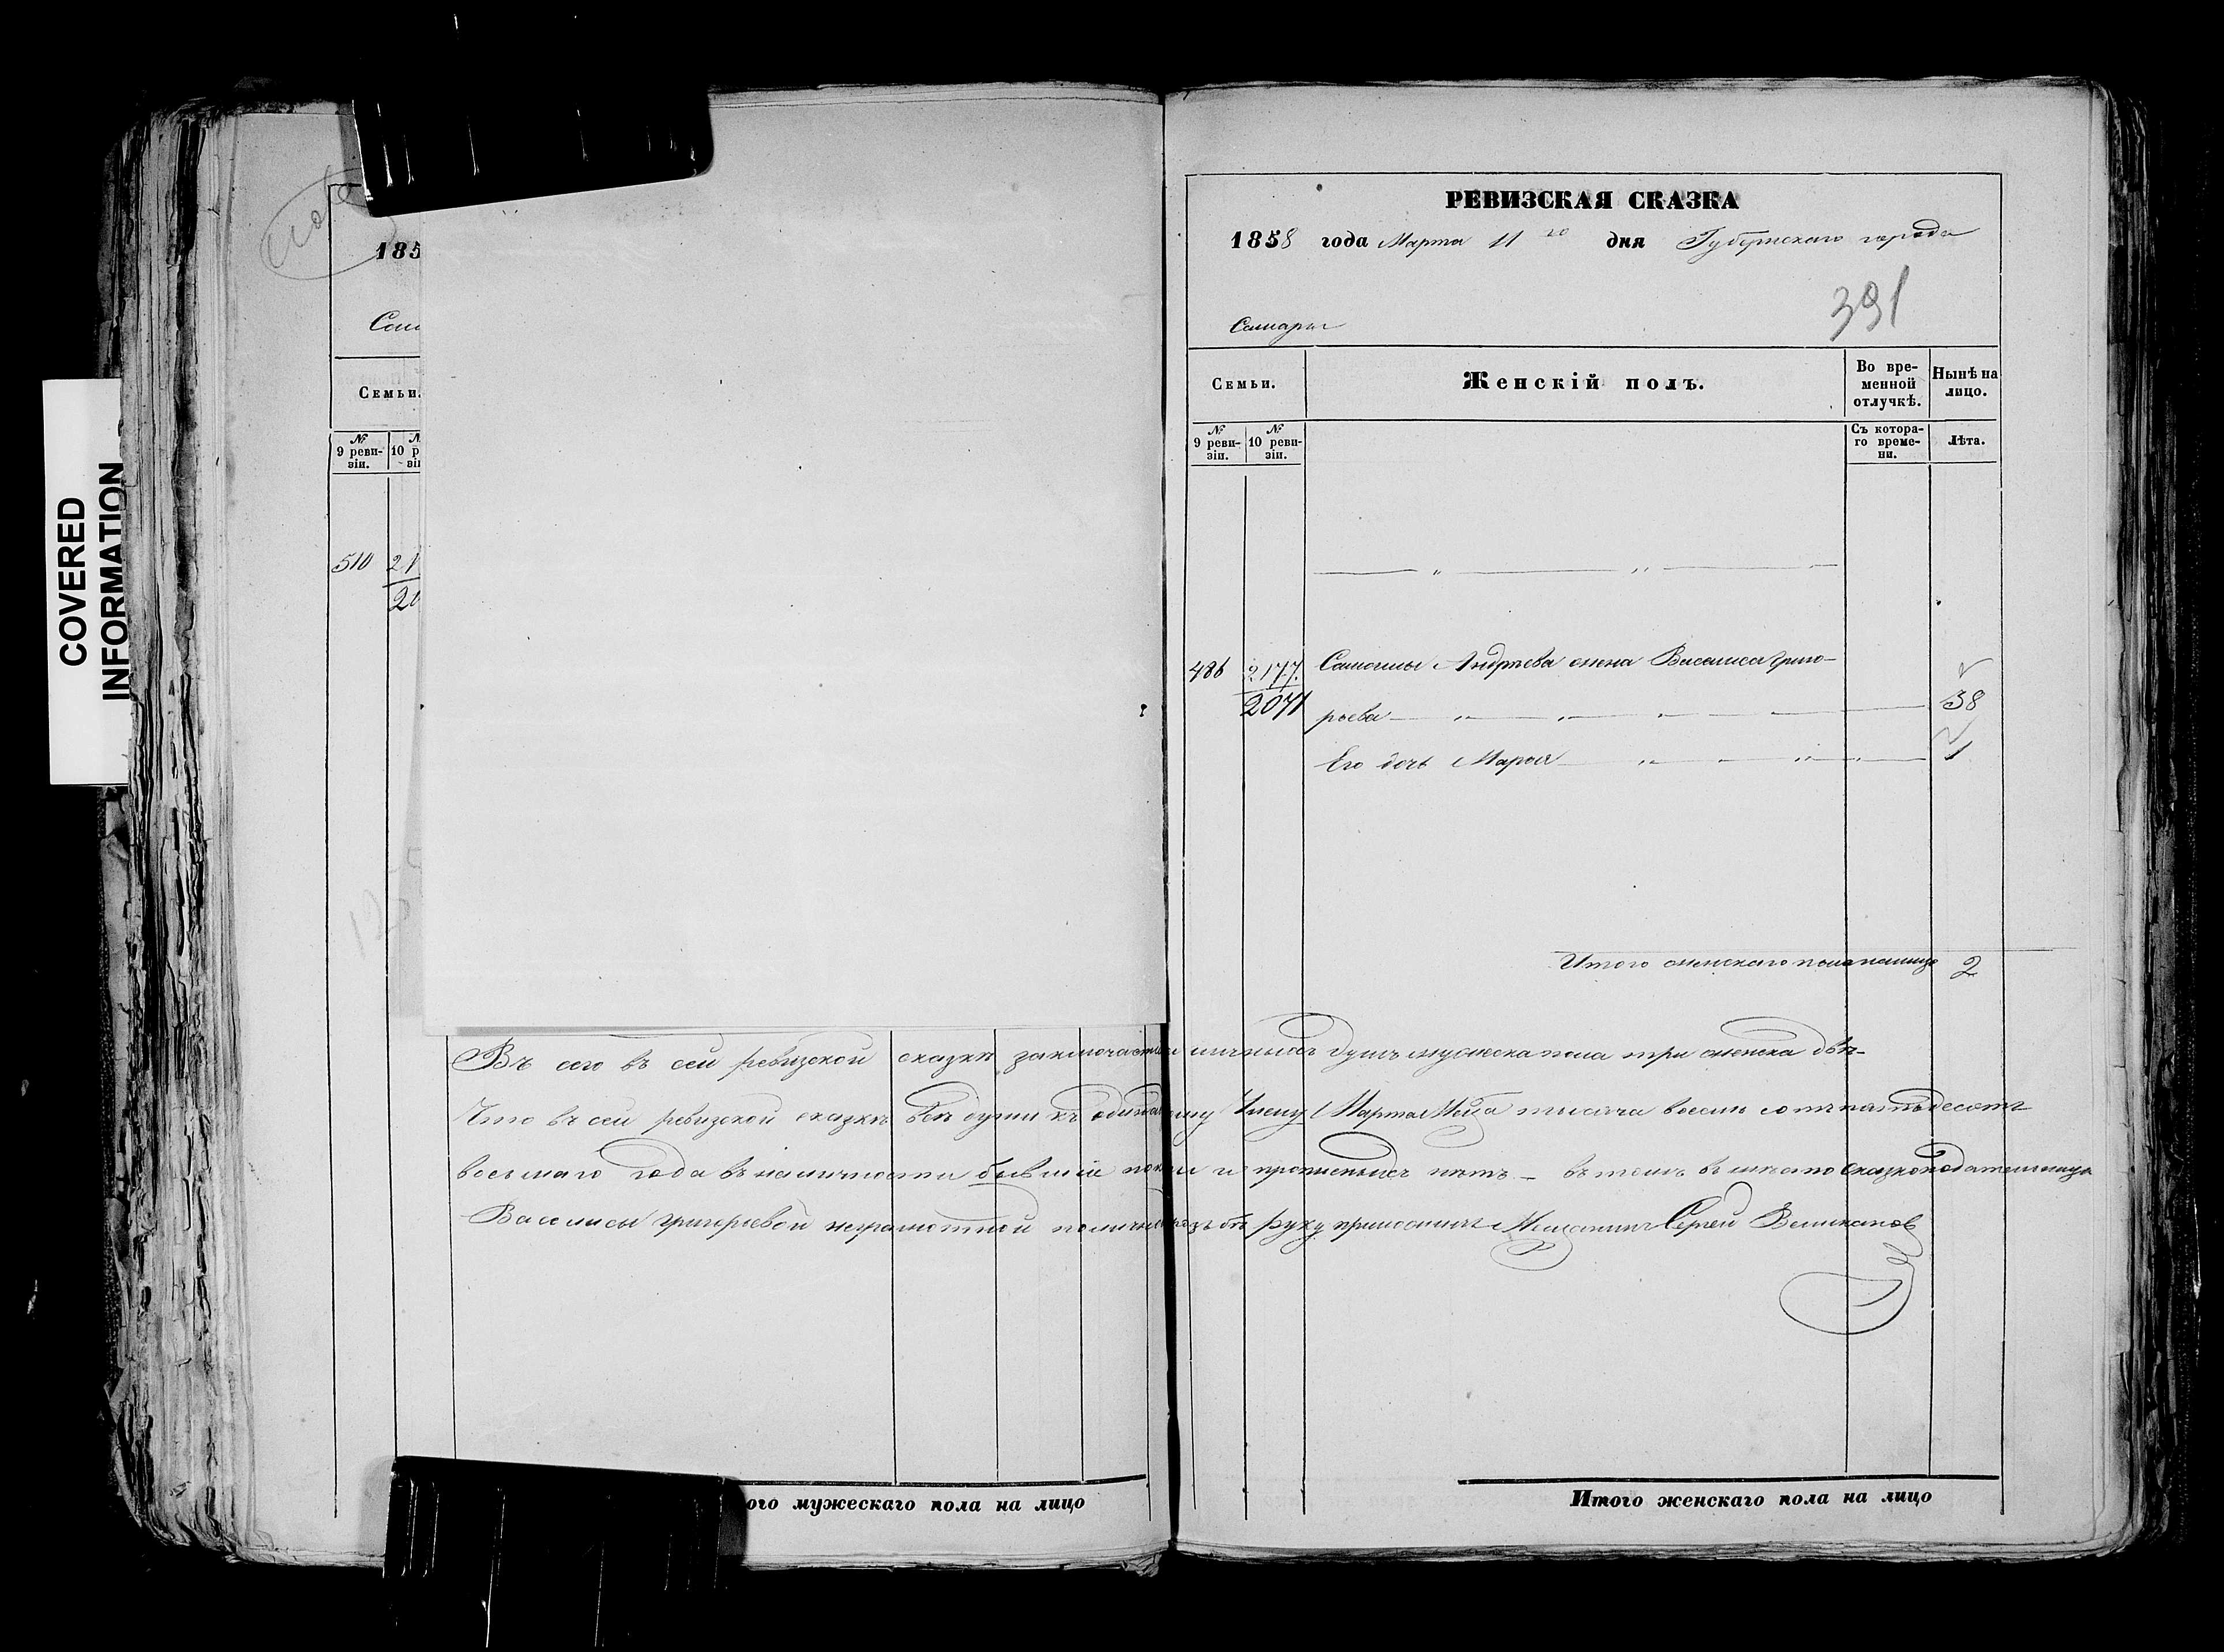 COVERED
INFORMATION
185
Сам
Семьи.
№ 9 ревизіи.
10 р
510
ого мужескаго пола на лицо
РЕВИЗСКАЯ СКАЗКА
1858 года Марта 11го дня Губернскаго города
391
Самары
Семьи.
Женскій полъ.
Во временной отлучкѣ.
Нынѣ на лицо.
№ 9 ревизіи.
№ 10 ревизіи.
Съ котораго времени.
Лѣта.
486 2177. Андреева жена Василиса Григо-
2071 рьева 38
Его дочь Марья 1
Итого женскаго пола на лицо 2
сего въ сей ревизской сказкѣ душъ мужеска пола три женска двѣ
Что въ сей ревизской сказкѣ всѣ души къ Марта Мѣца тысяча восемь сотъ пятьдесятъ
восьмаго года въ наличности бывшіе и прописныхъ нѣтъ въ томъ вмѣсто сказкоподательницы
Василисы Григорьевой неграмотной руку приложилъ Мещанинъ Сергей Великановъ
Итого женскаго пола на лицо